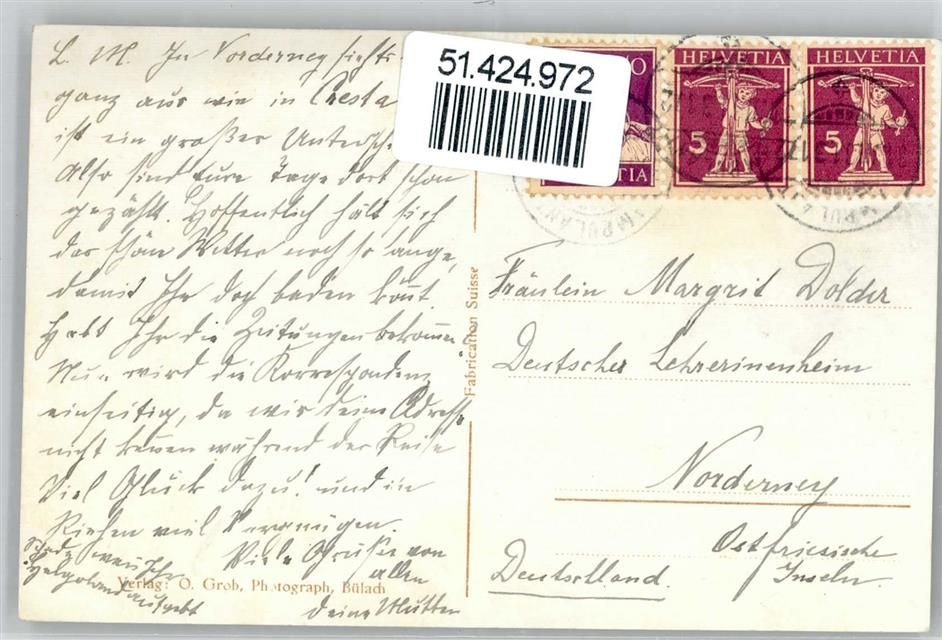 L. M. In Norderney siehts
ganz aus wie in Cresta
ist ein großer Untersch
Also sind eure Tage dort schon
gezählt. Hoffentlich hält sich
das schöne Wetter noch so lange,
damit Ihr doch baden könnt.
Habt Ihr die Zeitungen bekommen?
Nun wird die Korrespondenz
einseitig, da wir deine Adresse
nicht kennen während der Reise
Viel Glück dazu! und in
viel Vergnügen.
Viele Grüsse von
allen
Deine Mutter
Schade
Helgoland
Verlag: O. Grob, Photograph, Bülach
Fabrication Suisse
51.424.972
HELVETIA
5
HELVETIA
5
Fräulein Margrit Dolder
Deutscher Lehrerinenheim
Norderney
Ostfriesische
Inseln.
Deutschland.